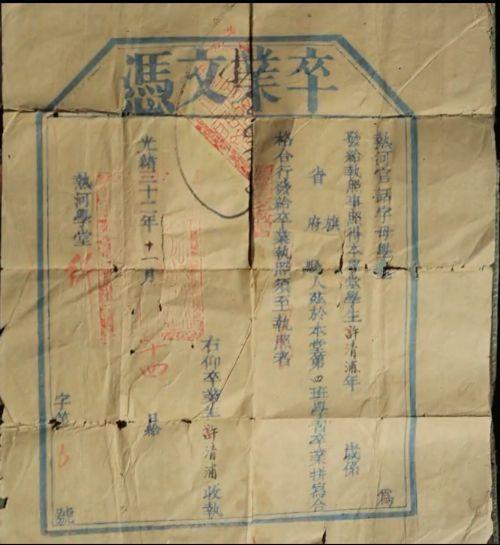 卒業文憑
熱河官話字母學堂 為
發給執照事照得本學堂學生許清浦年 歲係
省府 旗縣人茲於本堂第四班學習卒業拼寫合
格合行發給卒業執照須至執照者
右仰卒業生許清浦收執
光緒三十二年十一月十四日給
熱河學堂 字第 號